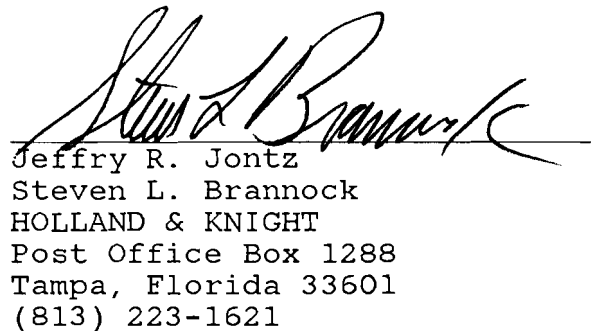 Steven L Brannock
Jeffry R. Jontz
Steven L. Brannock
HOLLAND & KNIGHT
Post Office Box 1288
Tampa, Florida 33601
(813) 223-1621